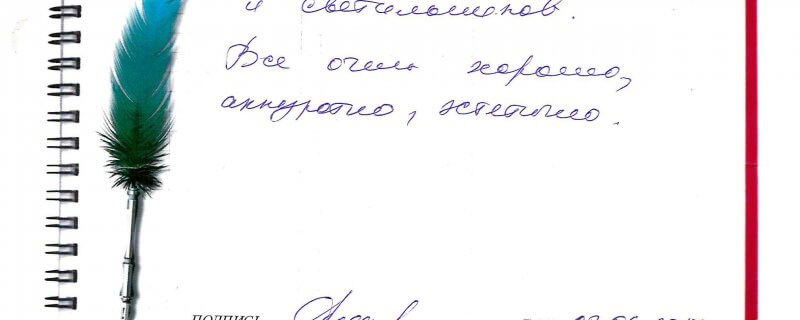 и светильников.
Все очень хорошо,
аккуратно, эстетично.
подпись